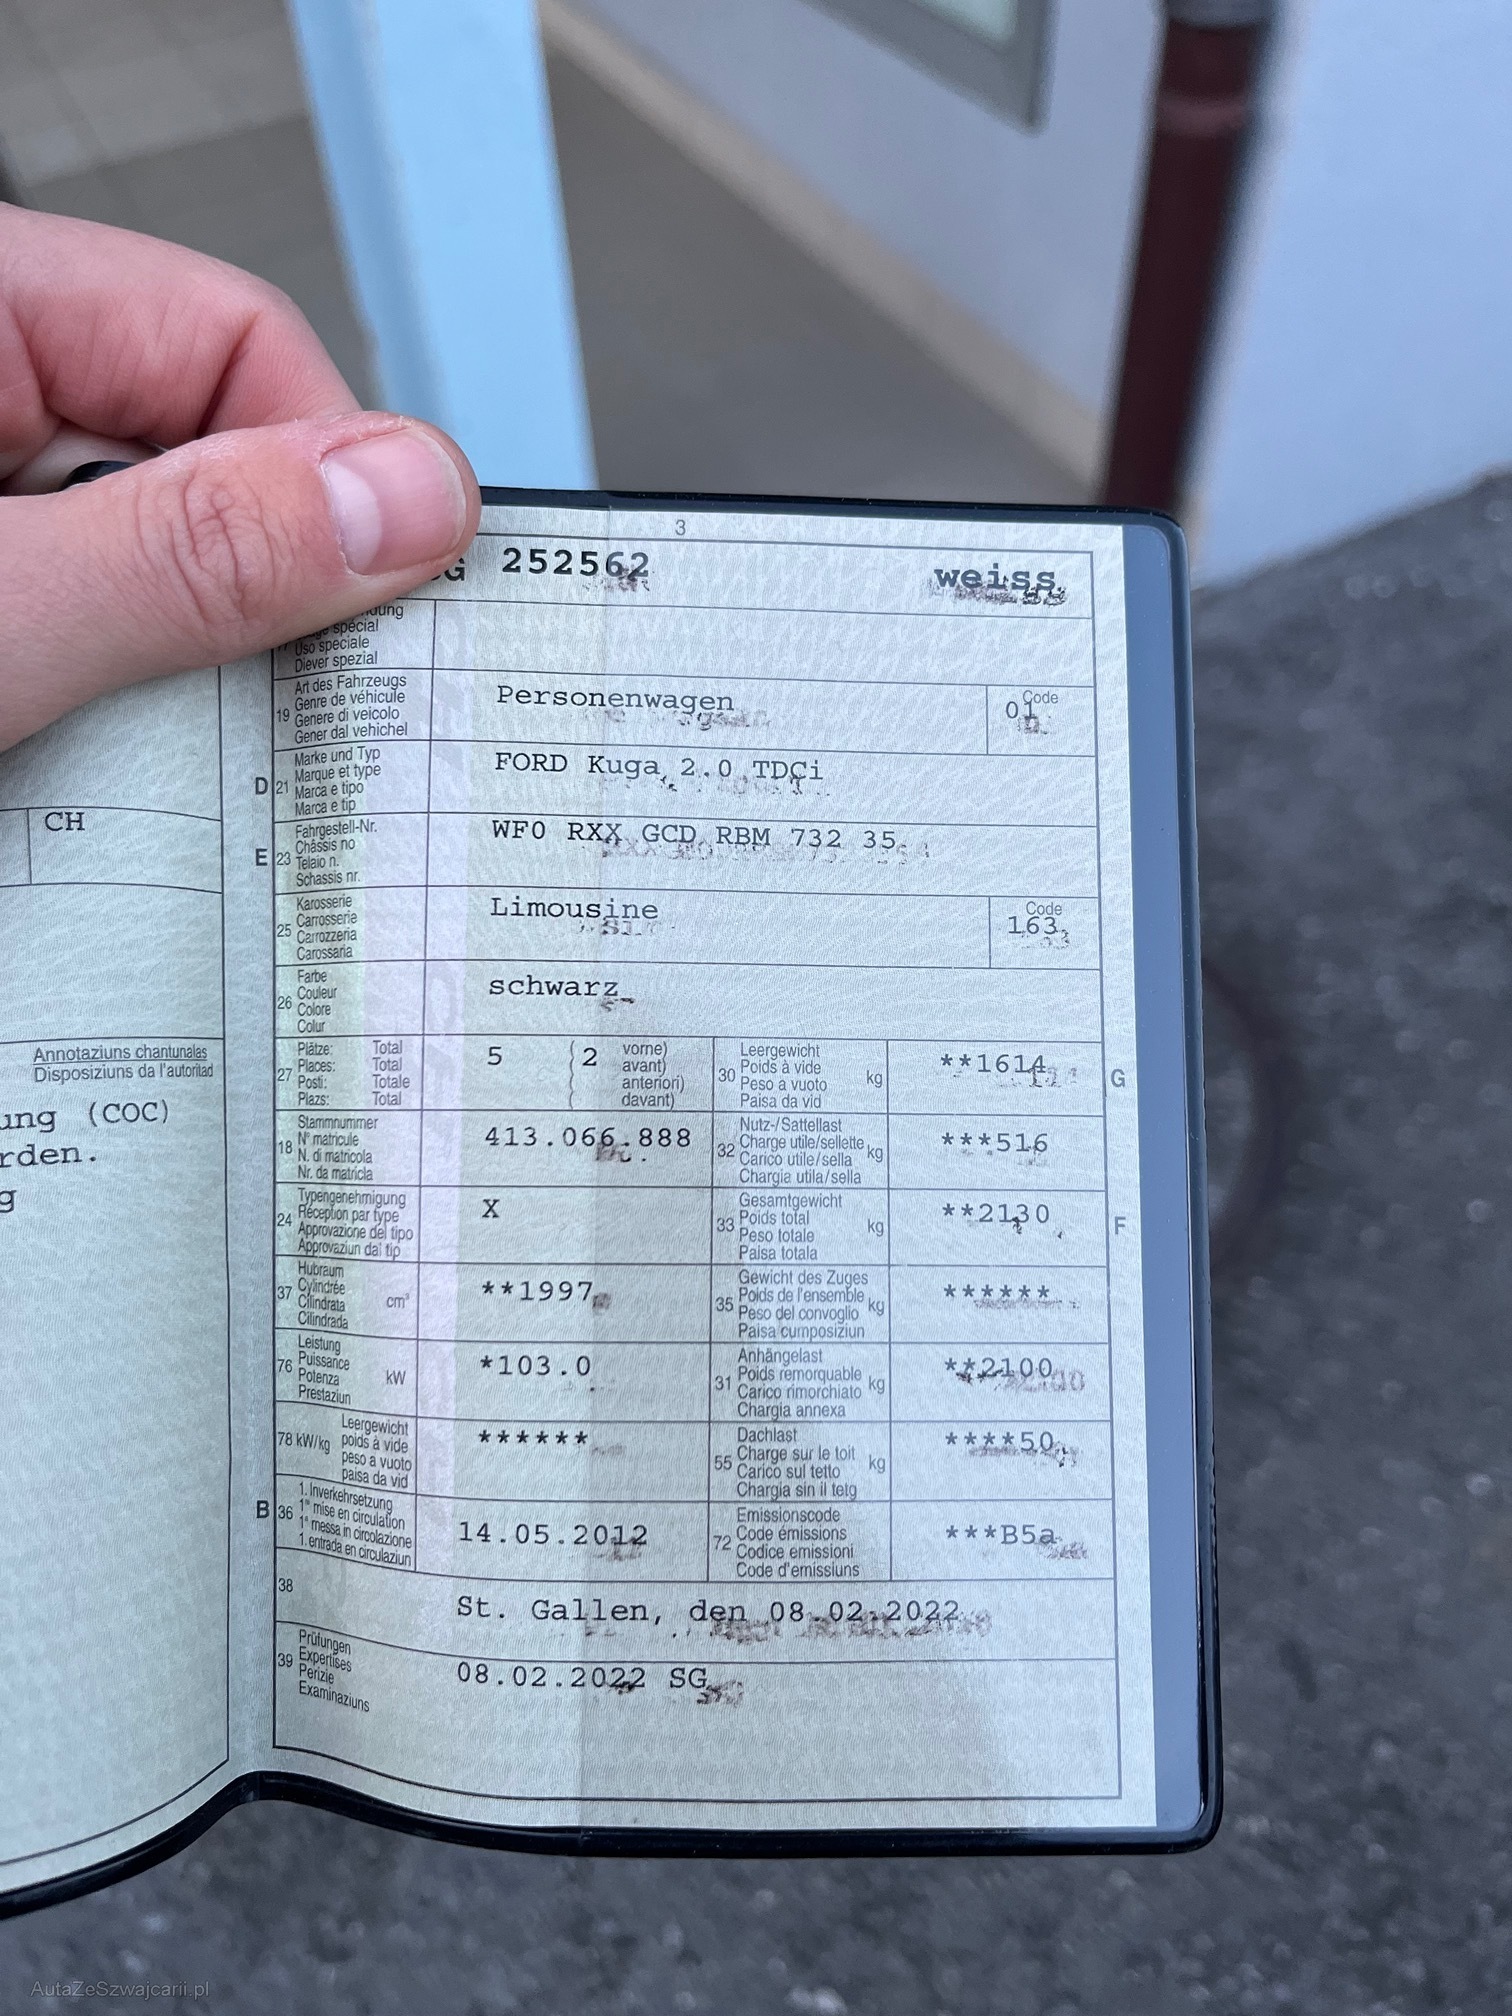 3
G 252562 weiss
spécial
Uso speciale
Diever spezial
19 Art des Fahrzeugs
Genre de véhicule
Genere di veicolo
Gener dal vehichel
Personenwagen
Code
01
D 21 Marke und Typ
Marque et type
Marca e tipo
Marca e tip
FORD Kuga 2.0 TDCi
E 23 Fahrgestell-Nr.
Châssis no
Telaio n.
Schassis nr.
WF0 RXX GCD RBM 732 35
25 Karosserie
Carrosserie
Carrozzeria
Carossaria
Limousine
Code
163
26 Farbe
Couleur
Colore
Colur
schwarz
27 Plätze: Total
Places: Total
Posti: Totale
Plazs: Total
5 ( 2 vorne)
avant)
anteriori)
( davant)
30 Leergewicht
Poids à vide
Peso a vuoto kg
Paisa da vid
**1614
G
18 Stammnummer
N° matricule
N. di matricola
Nr. da matricla
413.066.888
32 Nutz-/Sattellast
Charge utile/sellette kg
Carico utile/sella
Chargia utila/sella
***516
24 Typengenehmigung
Réception par type
Approvazione del tipo
Approvaziun dal tip
X
33 Gesamtgewicht
Poids total kg
Peso totale
Paisa totala
**2130
F
37 Hubraum
Cylindrée
Cilindrata cm³
Cilindrada
**1997
35 Gewicht des Zuges
Poids de l'ensemble
Peso del convoglio kg
Paisa cumposiziun
******
76 Leistung
Puissance
Potenza kW
Prestaziun
*103.0
31 Anhängelast
Poids remorquable
Carico rimorchiato kg
Chargia annexa
**2100
78 kW/kg Leergewicht
poids à vide
peso a vuoto
paisa da vid
******
55 Dachlast
Charge sur le toit
Carico sul tetto kg
Chargia sin il tetg
****50
B 36 1. Inverkehrsetzung
1re mise en circulation
1a messa in circolazione
1. entrada en circulaziun
14.05.2012
72 Emissionscode
Code émissions
Codice emissioni
Code d'emissiuns
***B5a
38
St. Gallen, den 08.02.2022
39 Prüfungen
Expertises
Perizie
Examinaziuns
08.02.2022 SG
CH
Annotaziuns chantunalas
Disposiziuns da l'autoritad
ung (COC)
rden.
g
AutaZeSzwajcarii.pl